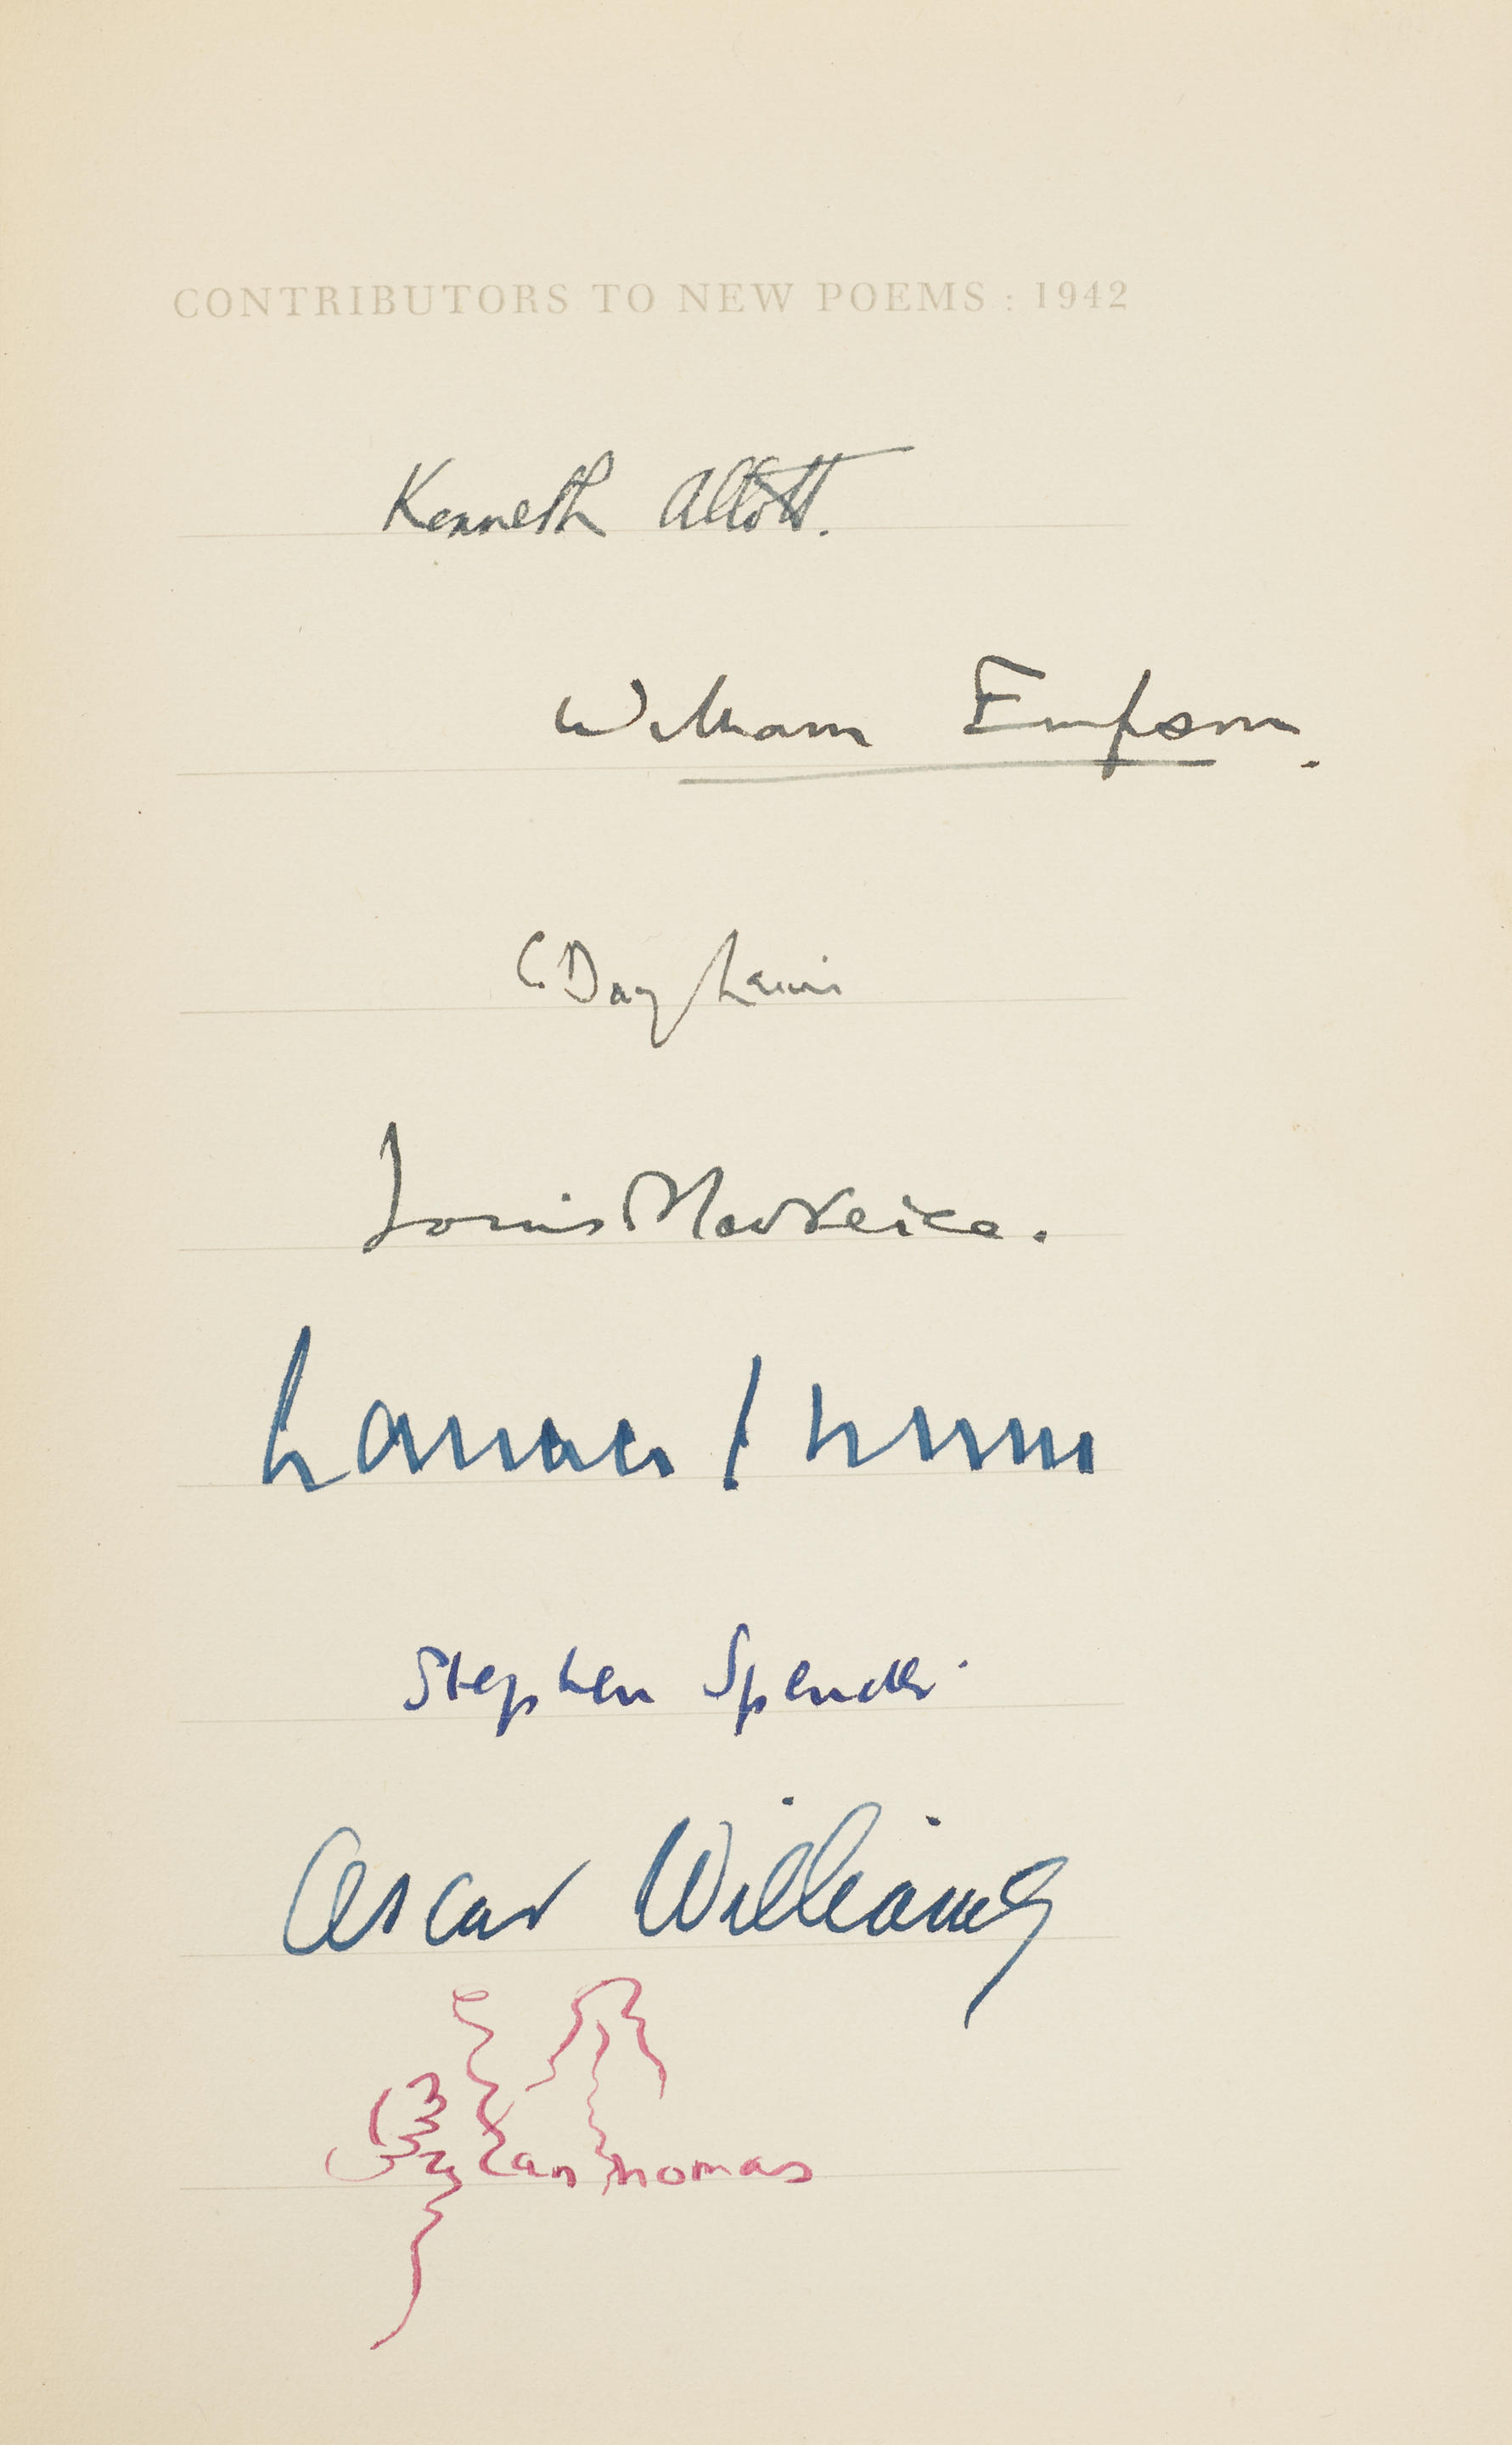 CONTRIBUTORS TO NEW POEMS : 1942
Kenneth Allott.
William Empson.
C Day Lewis
Louis MacNeice.
Stephen Spender.
Oscar Williams
Dylan Thomas